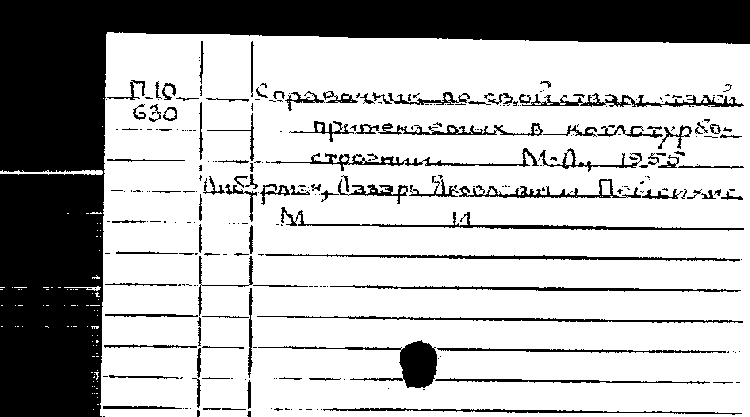 П10
630
Справочник по свойствам сталей
применяемых в котлотурбо-
строении. М.-Л., 1955
Либерман, Лазарь Яковлевич и Пейсихис
М И